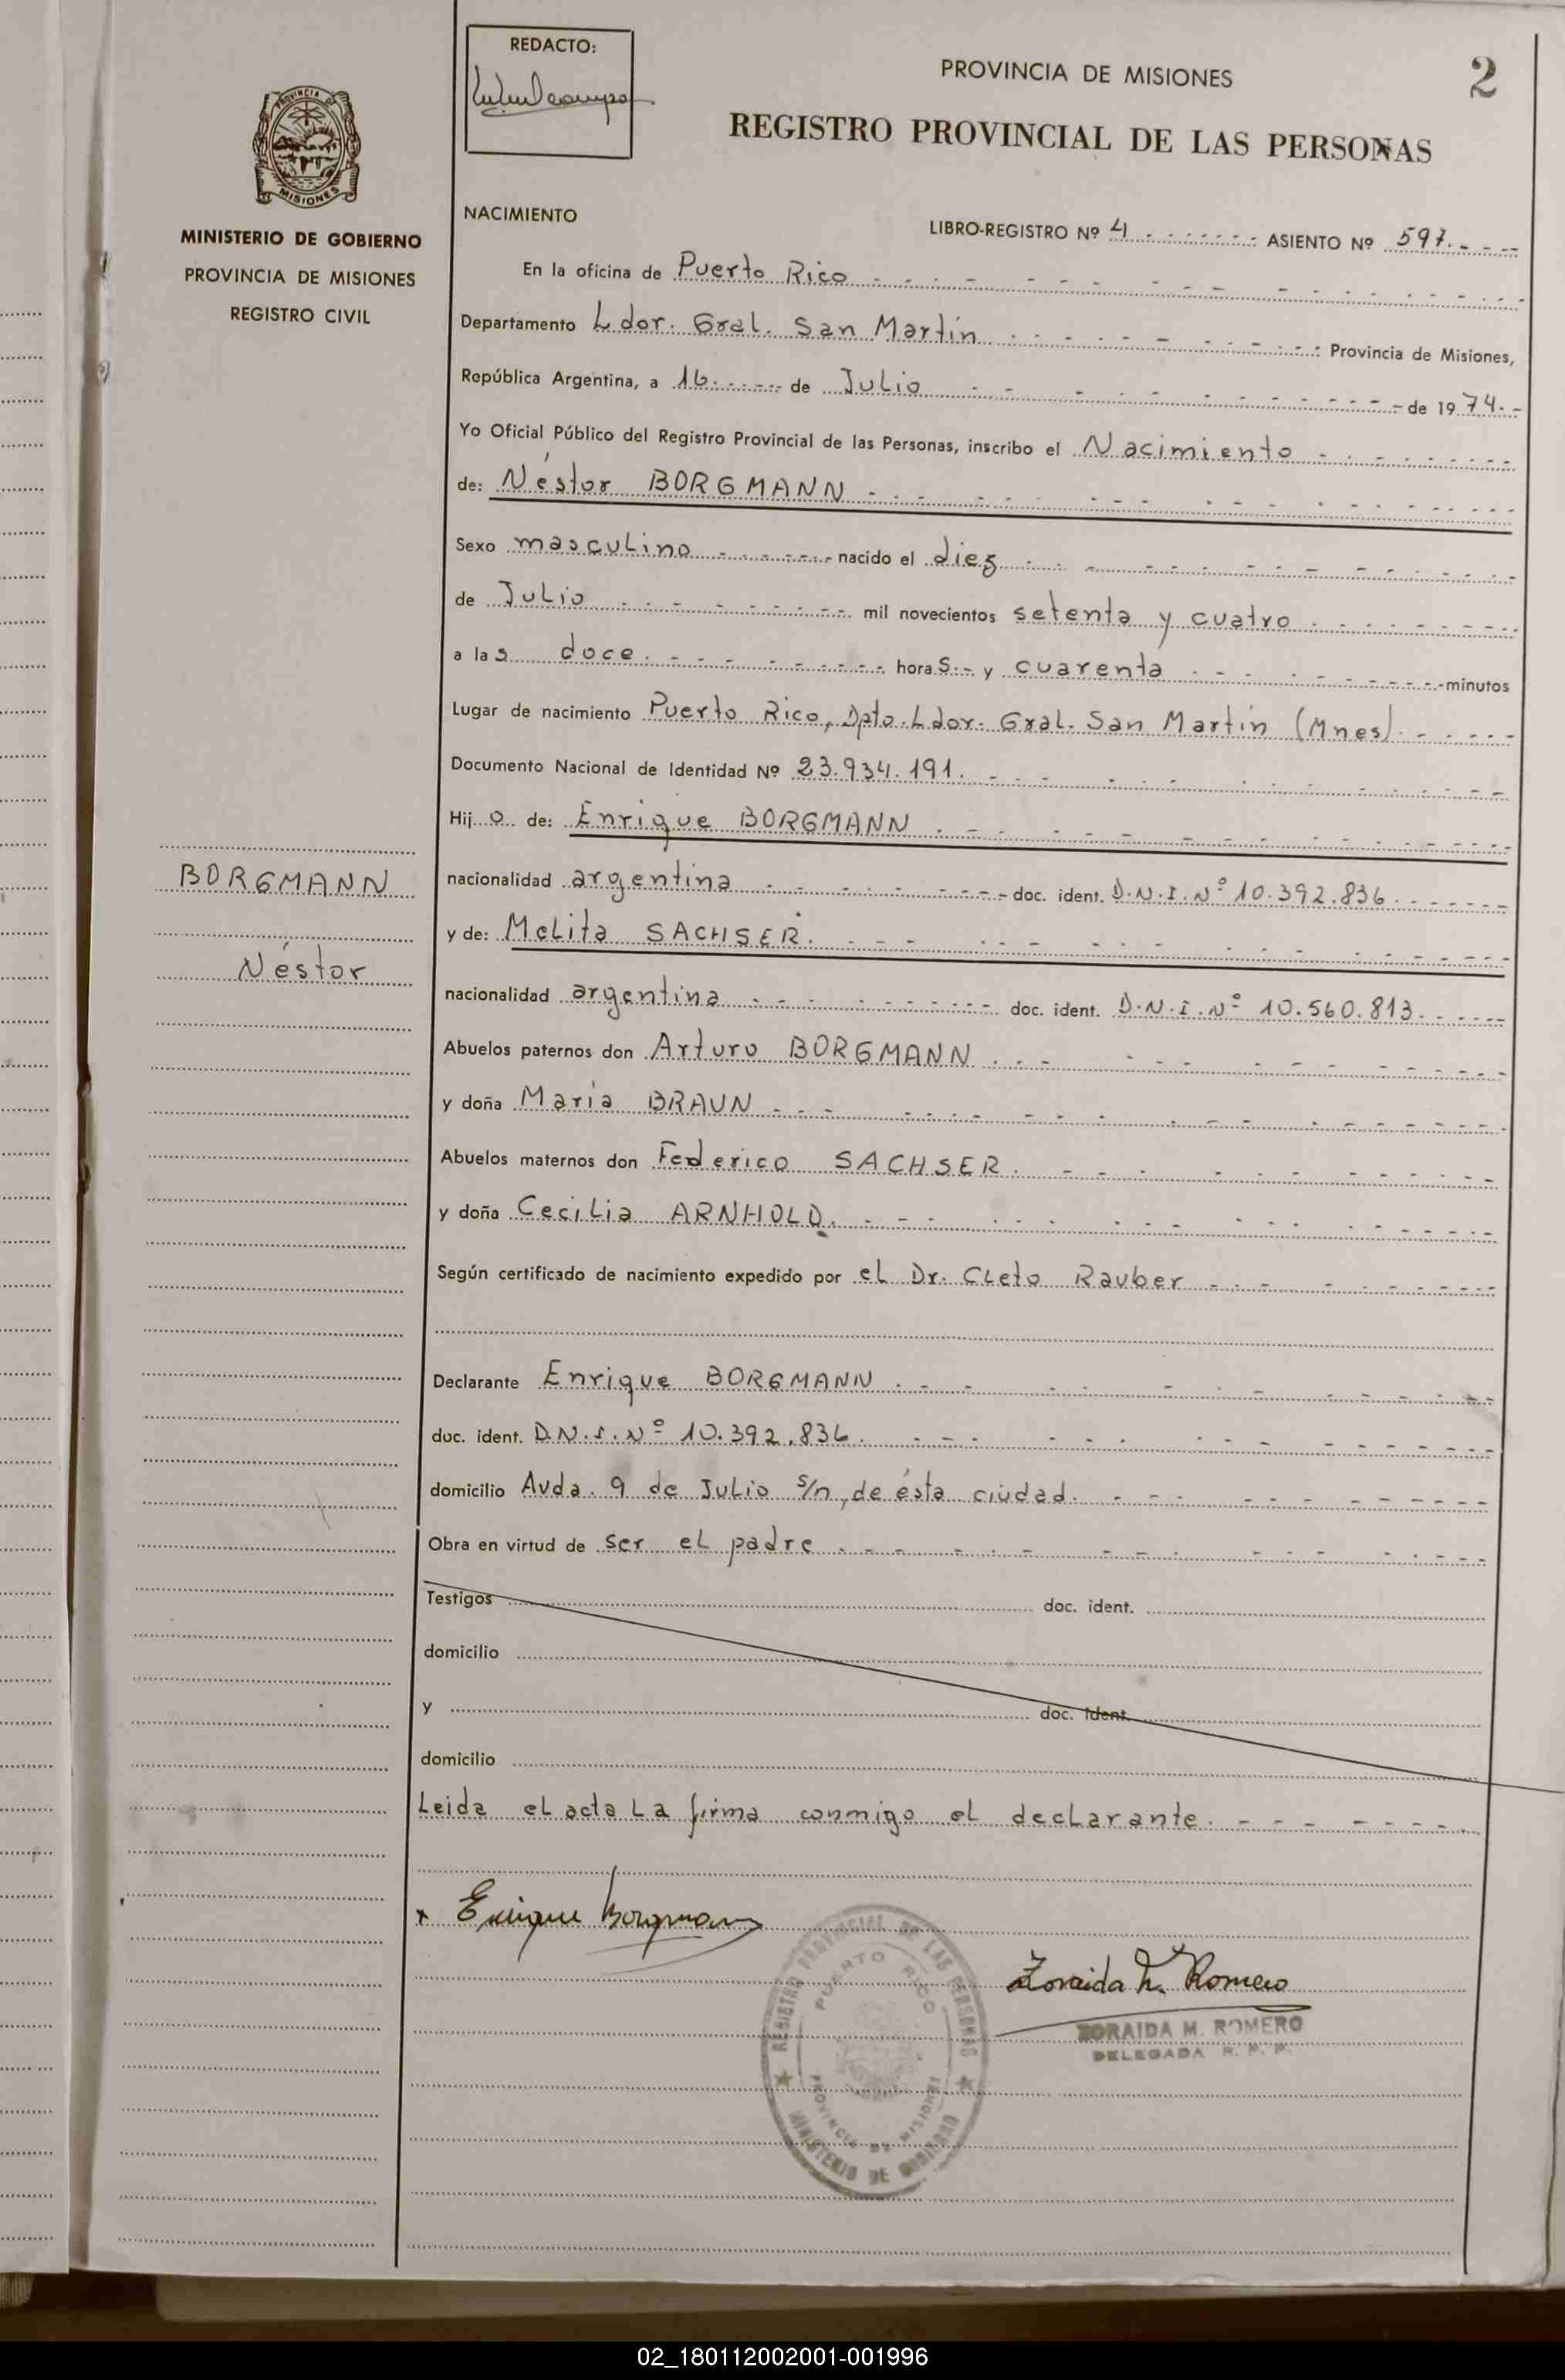 REDACTO:
PROVINCIA DE MISIONES
2
REGISTRO PROVINCIAL DE LAS PERSONAS
PROVINCIA DE
MISIONES
MINISTERIO DE GOBIERNO
PROVINCIA DE MISIONES
REGISTRO CIVIL
NACIMIENTO
LIBRO-REGISTRO Nº 4 ASIENTO Nº 597.
En la oficina de Puerto Rico
Departamento Ldor. Gral. San Martín Provincia de Misiones,
República Argentina, a 16 de Julio de 1974.
Yo Oficial Público del Registro Provincial de las Personas, inscribo el Nacimiento
de: Néstor BORGMANN
Sexo masculino nacido el diez
de Julio mil novecientos setenta y cuatro
a las doce. horas.- y cuarenta minutos
Lugar de nacimiento Puerto Rico, Dpto. Ldor. Gral. San Martín (Mnes).
Documento Nacional de Identidad Nº 23.934.191.
Hijo de: Enrique BORGMANN
BORGMANN
nacionalidad argentina doc. ident. D.N.I.Nº 10.392.836
y de: Melita SACHSER.
Néstor
nacionalidad argentina doc. ident. D.N.I.Nº 10.560.813.
Abuelos paternos don Arturo BORGMANN
y doña María BRAUN
Abuelos maternos don Federico SACHSER.
y doña Cecilia ARNHOLD.
Según certificado de nacimiento expedido por el Dr. Cleto Rauber
Declarante Enrique BORGMANN
doc. ident. D.N.I.Nº 10.392.836.
domicilio Avda. 9 de Julio s/n, de ésta ciudad.
Obra en virtud de ser el padre
Testigos doc. ident.
domicilio
y doc. ident.
domicilio
Leida el acta La firma conmigo el declarante.
x Enrique Borgmann
Zoraida M. Romero
ZORAIDA M. ROMERO
DELEGADA R. P. P.
REGISTRO PROVINCIAL DE LAS PERSONAS
PUERTO RICO
PROVINCIA DE MISIONES
MINISTERIO DE GOBIERNO
02_180112002001-001996